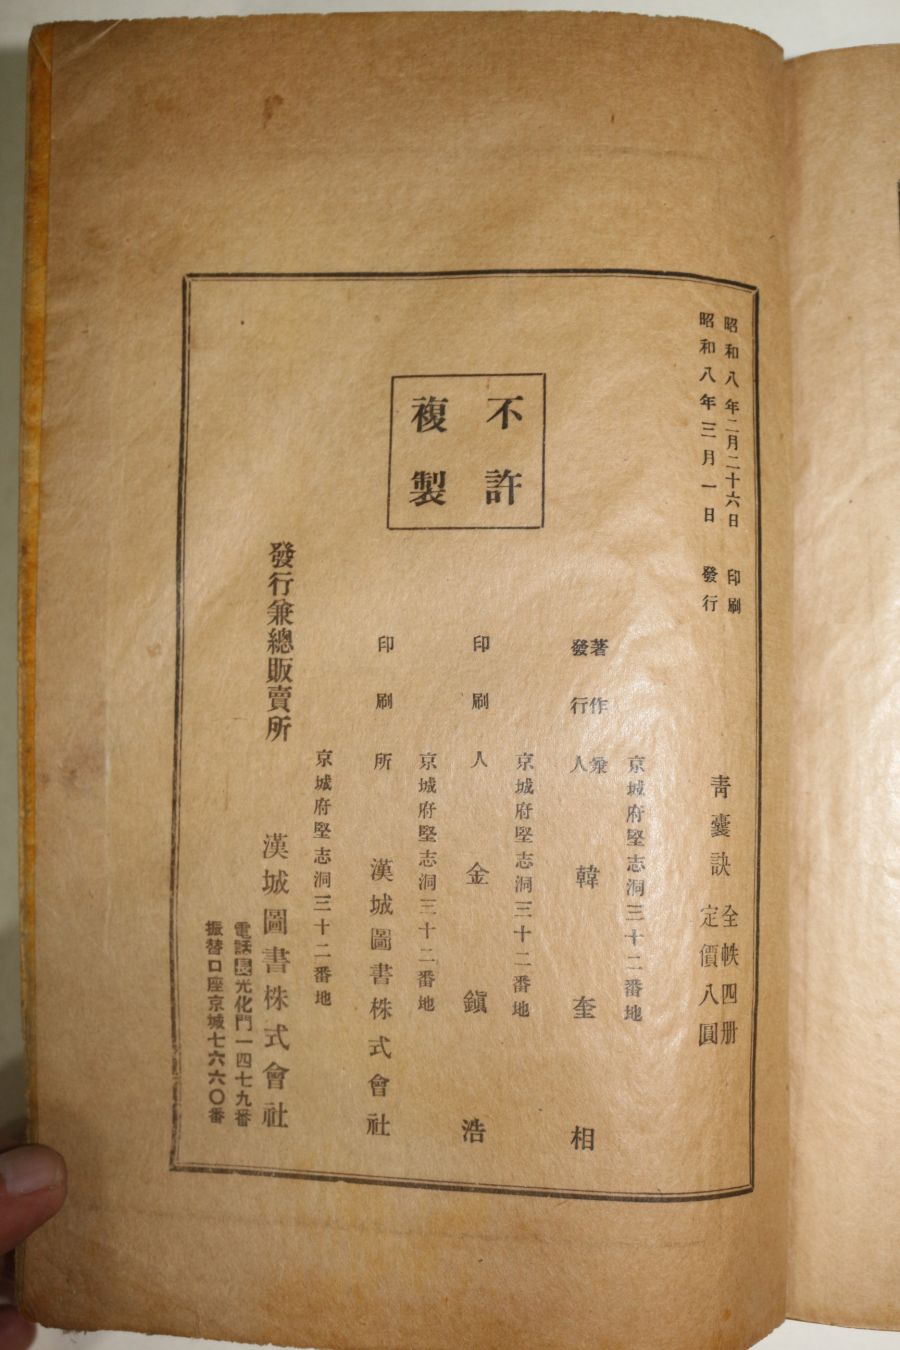 昭和八年二月二十六日 印刷
昭和八年三月一日 發行
靑囊訣 全帙四册
定價八圓
不許
複製
京城府堅志洞三十二番地
著作兼
發行人 韓奎相
京城府堅志洞三十二番地
印刷人 金鎭浩
京城府堅志洞三十二番地
印刷所 漢城圖書株式會社
京城府堅志洞三十二番地
發行兼總販賣所 漢城圖書株式會社
電話長光化門一四七九番
振替口座京城七六六〇番